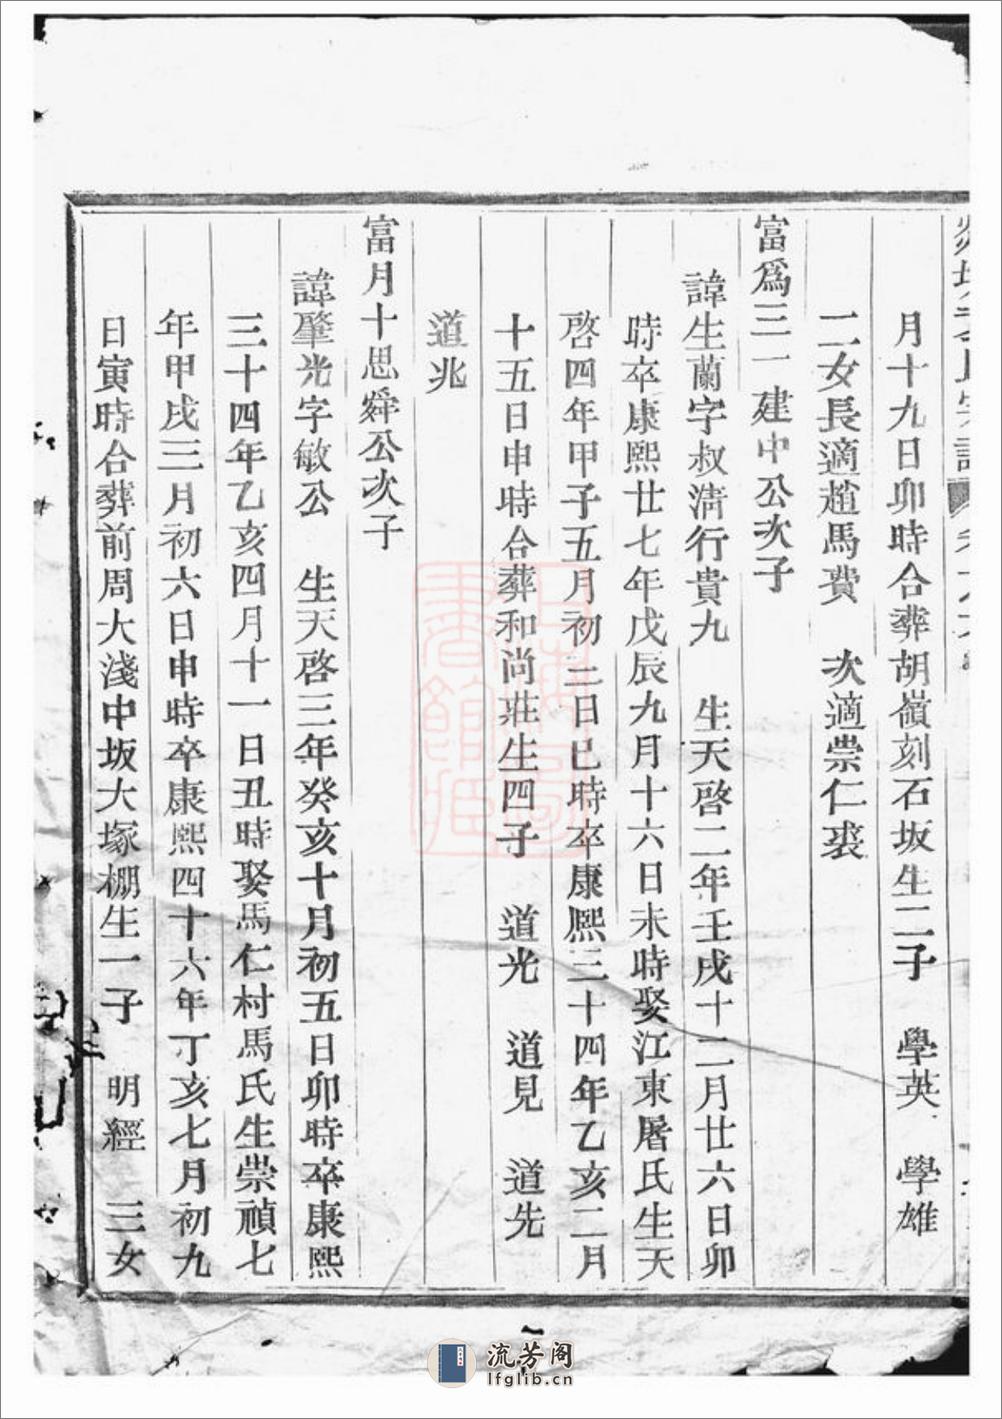 月十九日卯時合葬胡嶺刻石坂生二子 學英 學雄
二女長適趙馬費 次適崇仁裘
富為三一建中公次子
諱生蘭字叔清行貴九 生天啓二年壬戌十二月廿六日卯
時卒康熙廿七年戊辰九月十六日未時娶江東屠氏生天
啓四年甲子五月初三日巳時卒康熙三十四年乙亥二月
十五日申時合葬和尚莊生四子 道光 道見 道先
道兆
富月十思舜公次子
諱肇光字敏公 生天啓三年癸亥十月初五日卯時卒康熙
三十四年乙亥四月十一日丑時娶馬仁村馬氏生崇禎七
年甲戌三月初六日申時卒康熙四十六年丁亥七月初九
日寅時合葬前周大淺中坂大塚棚生一子 明經 三女
流芳阁
lfglib.cn